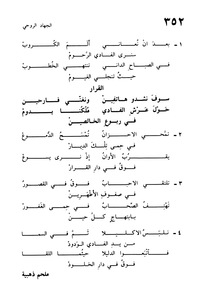 ٣٥٢ الجهاد الروحي
١ - بعد ان نعاني ألم الكروب
سنرى الفادي الرحوم
في الصباح الداني تنتهي الخطوب
حيث تنجلي الغيوم
القرار
سوف نشدو هاتفين ونغني فارحين
حول عرش الفادي ملكنا يدوم
في ربوع الخالصين
٢ - نمحي الاحزان تمسح الدموع
في حمى تلك الديار
يقرب الأوان إذ نرى يسوع
فوق في دار القرار
٣ - نلتقي الاحباب فوق في القصور
في صفوف الأطهرين
نهتف الصحاب في حمى الغفور
بابتهاج كل حين
٤ - نلبس الاكليلا ثم في السما
من يد الفادي الودود
فاتبعوا الدليلا حيثما التقينا
فوق في دار الخلود
ملحم ذهبية